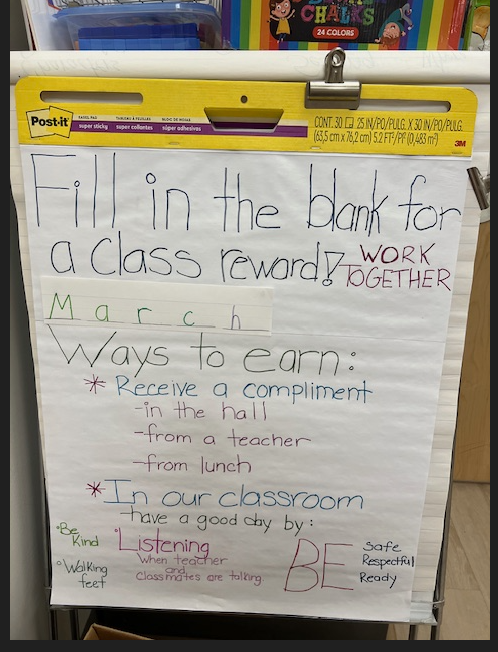 CHALKS
24 COLORS
Post-it
EASEL PAD TABLEAU À FEUILLES BLOC DE HOJAS
super sticky super collantes súper adhesivos
CONT. 30 25 IN/PO/PULG. X 30 IN/PO/PULG.
(63,5 cm x 76,2 cm) 5.2 FT²/PI² (0,483 m²)
3M
Fill in the blank for
a class reward! WORK
TOGETHER
March
Ways to earn:
* Receive a compliment
-in the hall
-from a teacher
-from lunch
* In our classroom
have a good day by:
°Be Kind
°Walking feet
°Listening
When teacher
and
classmates are talking.
BE
Safe
Respectful
Ready